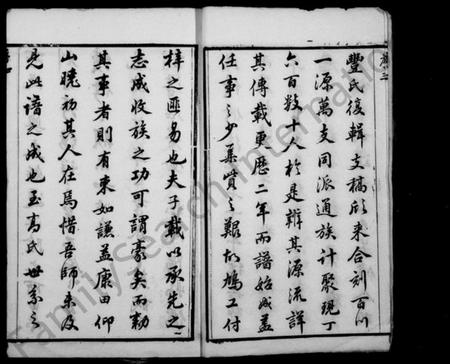 豐氏復輯支稿欣來合刻百川
一源萬支同派通族計聚現丁
六百數十人於是辑其源流詳
其傳載更歷二年而譜始成蓋
任事之少集貲之艱加鳩工付
梓之匪易也夫子載以承先之
志成收族之功可謂豪矣而勷
其事者則有東如謙益康田仰
山曉初其人在焉惜吾師未及
見此譜之成也至高氏世系之
FamilySearch International